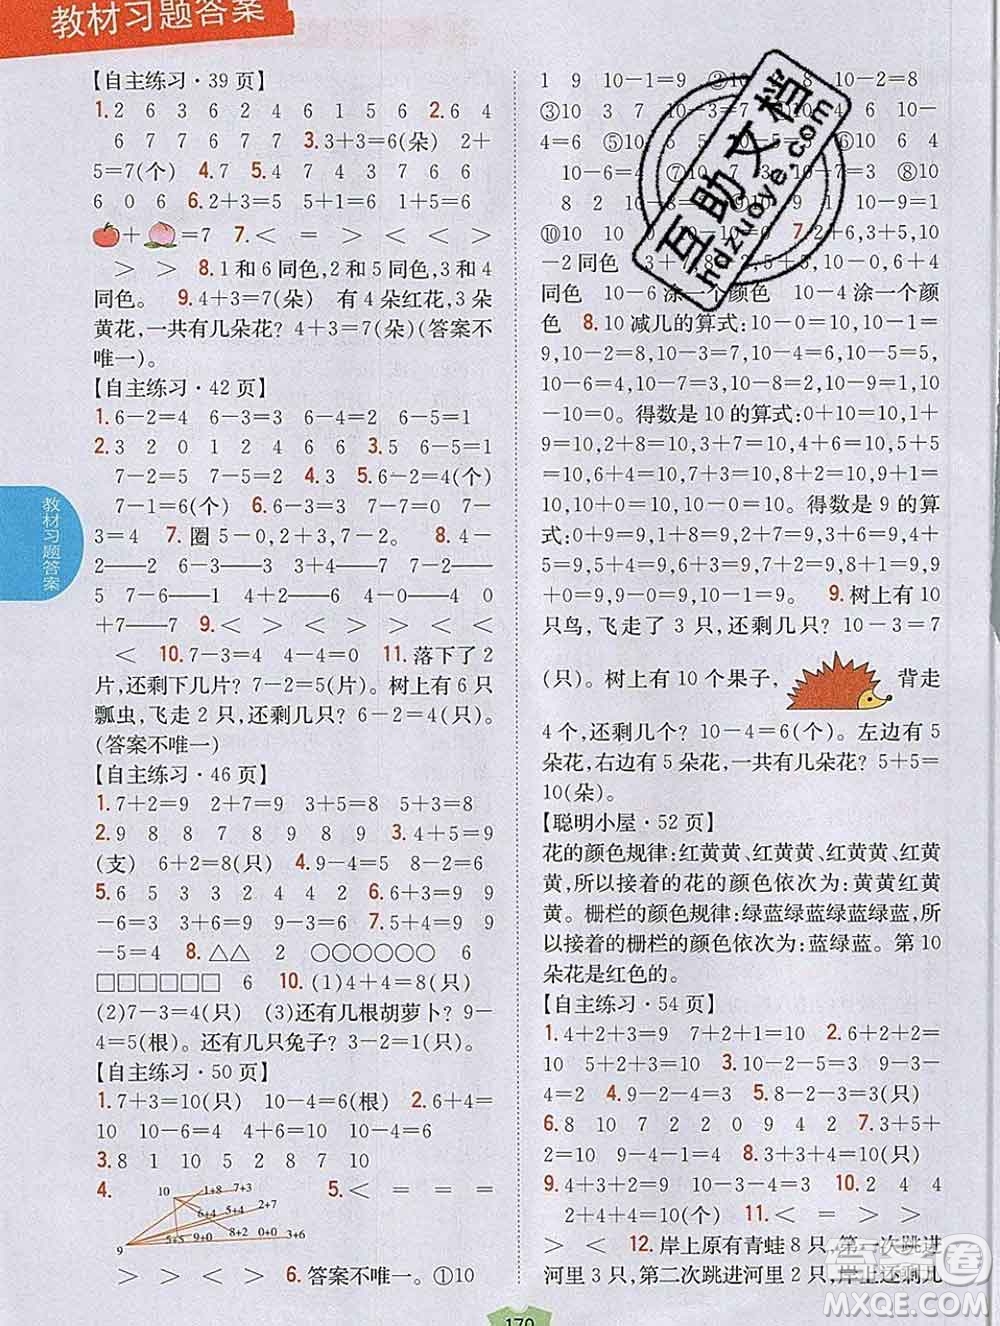 教材习题答案
教材习题答案
【自主练习·39页】
1.2 6 3 6 2 4 6 1 5 6 2.6 4
6 7 7 6 7 7 3.3+3=6(朵) 2+
5=7(个) 4.7 5.4 7 6 7 6 6
6 0 6 6.2+3=5 5+1=6 1+5=6
+ =7 7.< = > < < < <
> > 8.1和6同色,2和5同色,3和4
同色。 9.4+3=7(朵) 有4朵红花,3朵
黄花,一共有几朵花? 4+3=7(朵)(答案不
唯一)。
【自主练习·42页】
1.6-2=4 6-3=3 6-4=2 6-5=1
2.3 2 0 1 0 1 6 3.5 6-5=1
7-2=5 7-5=2 4.3 5.6-2=4(个)
7-1=6(个) 6.6-3=3 7-0=7 7-
3=4 7.圈5-0,2+3,7-2。 8.4-
2——2 6-3——3 3+4——7 6-1——
5 7-6——1 4+2——6 1+2——3 0
+7——7 9.< < > < > > < <
< 10.7-3=4 4-4=0 11.落下了2
片,还剩下几片? 7-2=5(片)。树上有6只
瓢虫,飞走了2只,还剩几只? 6-2=4(只)。
(答案不唯一)
【自主练习·46页】
1.7+2=9 2+7=9 3+5=8 5+3=8
2.9 8 8 7 8 9 8 9 3.4+5=9
(支) 6+2=8(只) 4.9-4=5 8-2=6
5.6 5 3 3 2 4 4 2 6.6+3=9 9
-6=3 5+4=9 9-4=5 7.6+3=9 9
-5=4 8.△△ 2 ○○○○○○ 6
□□□□□□ 6 10.(1)4+4=8(只)
(2)7-3=4(只) (3)还有几根胡萝卜? 9-
4=5(根)。还有几只兔子? 3-2=1(只)。
【自主练习·50页】
1.7+3=10(只) 10-4=6(根) 2.6+4=
10 10-6=4 10-4=6
3.8 1 10 5 2 4 5 10
4. 5.< = = =
10 1+8 7+3
6+4 5+4 2+7
9 5+5 9+0 8+2 0+0 3+6
> > = < > 6.答案不唯一。①10
1 9 10-1=9 ②10 10-2=8
③10 10-3=7 ④10
4=6 ⑤10 ⑥10
10-6=4 ⑦10 ⑧10
8 2 10-8=2
⑩10 0 10 10-0=10 7.2+6,3+5,10
-2同色 3+6
同色 10-6涂一个颜色 10-4涂一个颜
色 8.10减几的算式:10-0=10,10-
1=9,10-2=8,10-3=7,10-4=6,10-
5=5,10-6=4,10-7=3,10-8=2,10-
9=1,10-10=0。得数是10的算式:0+10=10,1+
9=10,2+8=10,3+7=10,4+6=10,5+5
=10,6+4=10,7+3=10,8+2=10,9+1=
10,10+0=10,10-0=10。得数是9的算
式:0+9=9,1+8=9,2+7=9,3+6=9,
4+5=9,5+4=9,6+3=9,7+2=9,8+1=9,9
+0=9,9-0=9,10-1=9。 9.树上有10
只鸟,飞走了3只,还剩几只? 10-3=7
(只)。树上有10个果子, 背走
4个,还剩几个? 10-4=6(个)。左边有5
朵花,右边有5朵花,一共有几朵花? 5+5=
10(朵)。
【聪明小屋·52页】
花的颜色规律:红黄黄、红黄黄、红黄黄、红黄
黄,所以接着的花的颜色依次为:黄黄红黄
黄。栅栏的颜色规律:绿蓝绿蓝绿蓝绿蓝,所
以接着的栅栏的颜色依次为:蓝绿蓝。第10
朵花是红色的。
【自主练习·54页】
1.4+2+2=8 7+2+1=10 2.6+2+2=
10 5+2+3=10 3.10-2-5=3 9-2
-2=5 4.9 5.2 8-2-3=3(只)
6.8 10 7 2 2 0 9 4 2 7.5
+3+2=10(只) 8.9-4-1=4(只)
9.4+3+2=9 10-3-4=3 10.2 4 4
2+4+4=10(个) 11.< = > >
> < 12.岸上原有青蛙8只,第一次跳进
河里3只,第二次跳进河里2只,岸上还剩几
互助文档
hdzuoye.com
答案圈
MXQE.COM
170